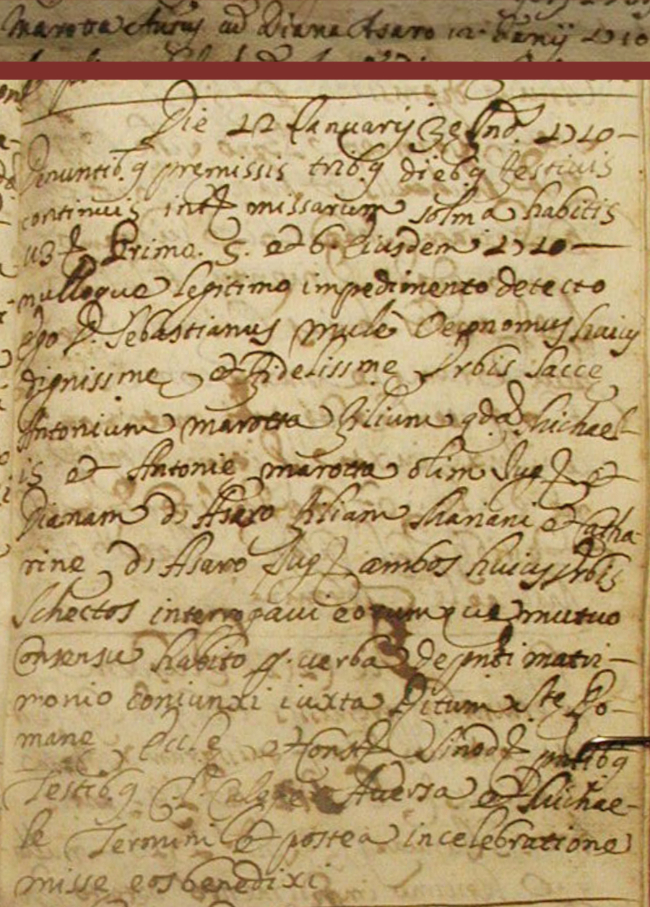 Marotta Antus cu Diana Asaro 12 Janij 1710
Die 12 Januarij 3e Ind. 1710 –
Denuntibq premissis tribq diebq festivis
continuis intr missarum solmia habitis
Primo. 5. et 6. Eiusdem 1710 –
nulloque legitimo impedimento detecto
ego D. Sebastianus Mule Oeconomus huius
dignissme et Fidelissme Urbis Sacce
Antonium Marotta filium qdam Michael-
is et Antonie Marotta olim Jug et
Dianam di Asaro filiam Mariani et Catha-
rine di Asaro Jug ambos huius urbis
Schectos interrogavi eorumque mutuo
Consensu habito pr verba de pnti matri-
monio coniunxi iuxta Ritum Ste Ro-
mane Eccle et Const Sinod pntibq
Testibq Aversa et Michae-
le Termini et postea in celebratione
misse eos benedixi